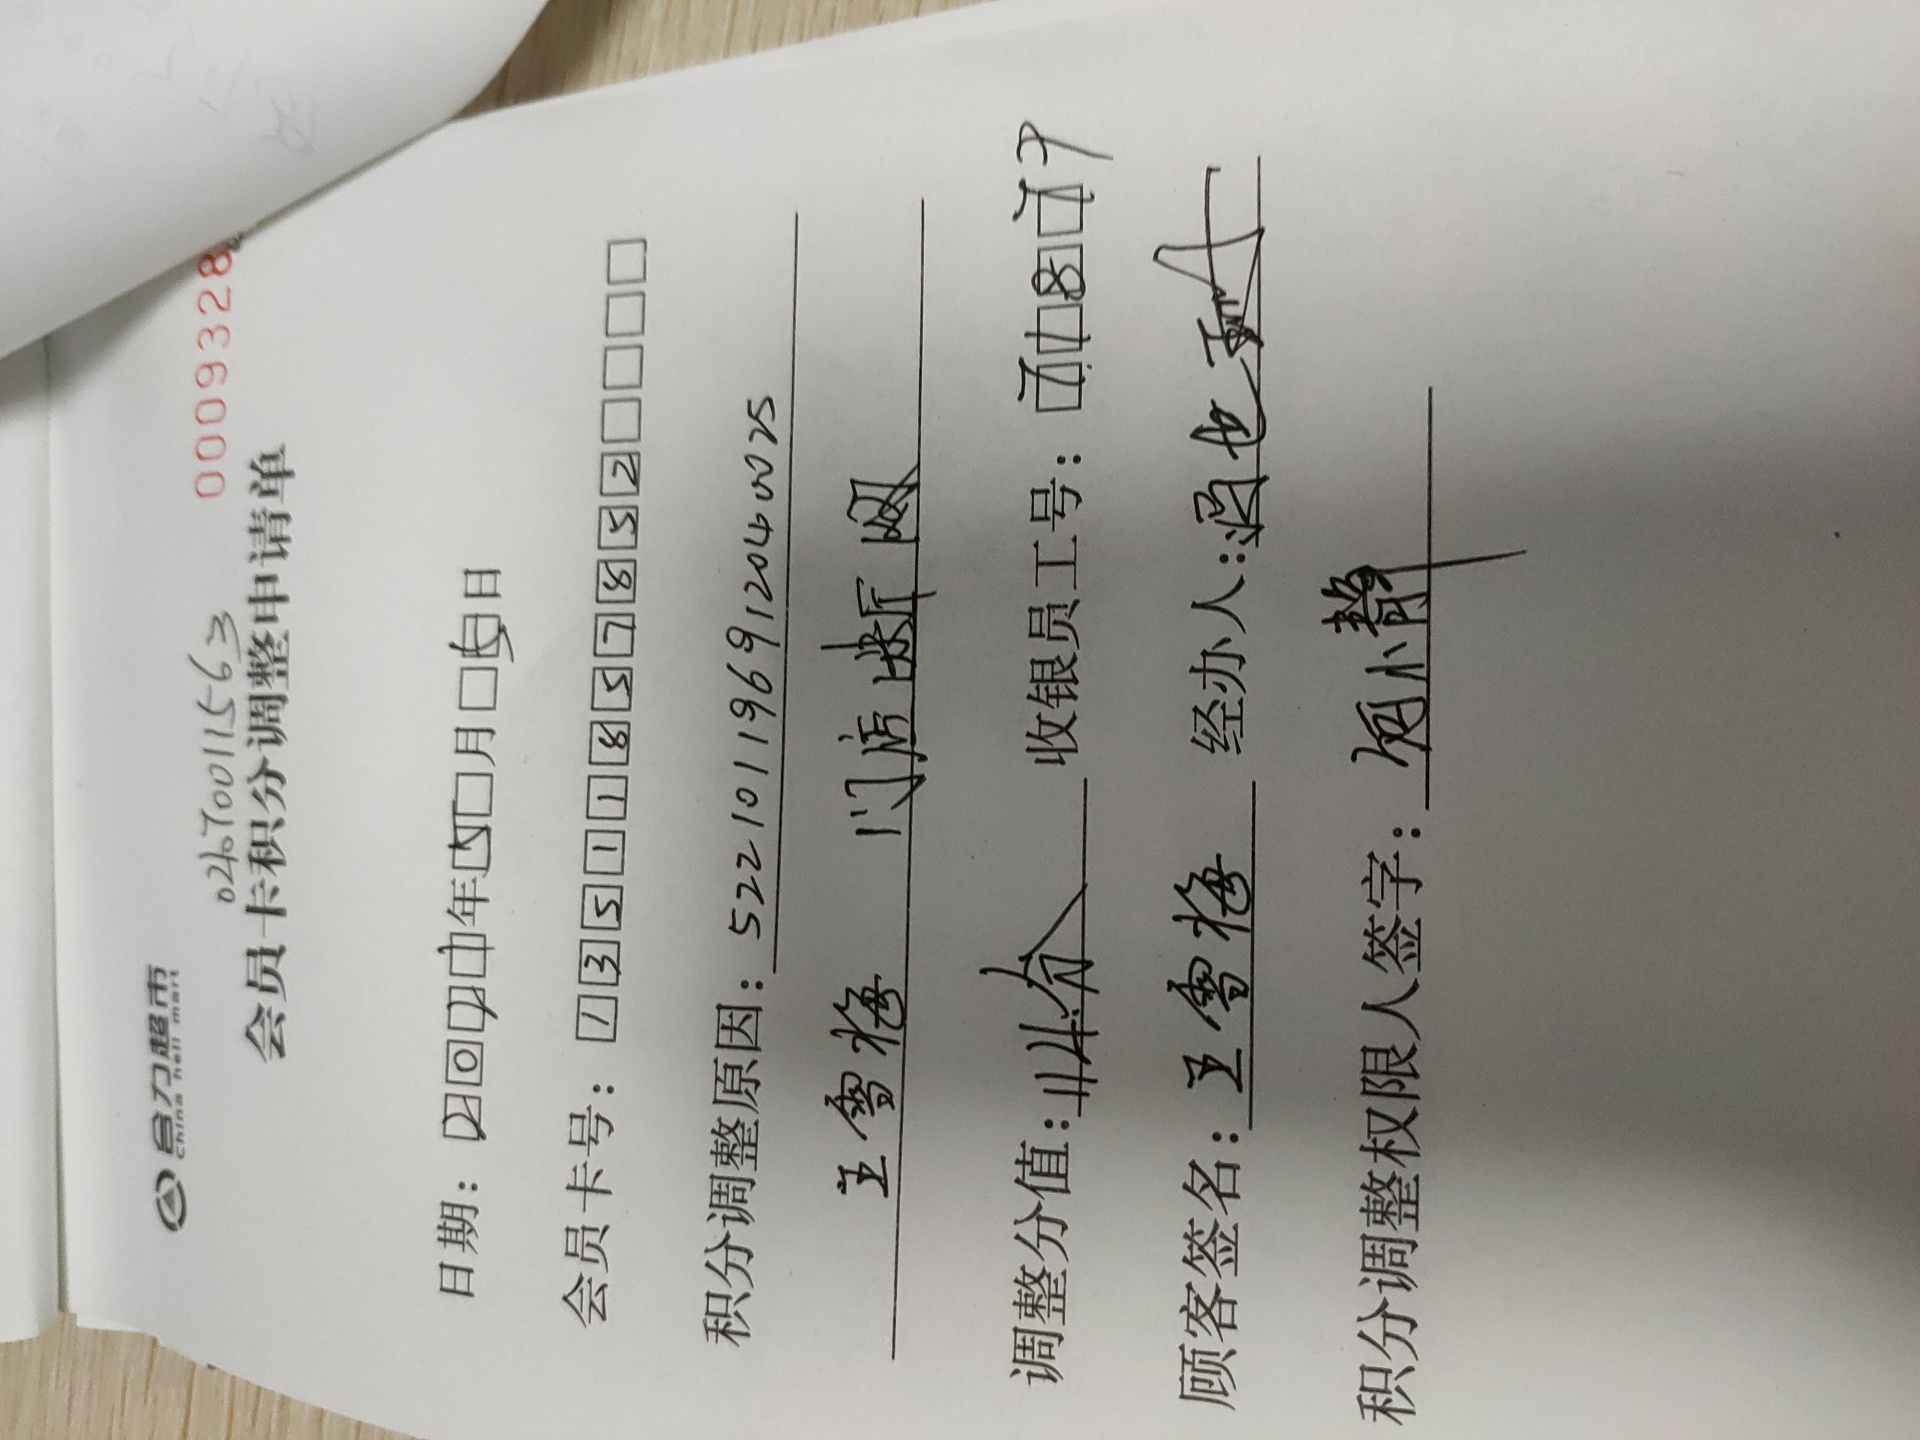 合力超市
china heli mart
0009328
0270011563
会员卡积分调整申请单
日期：2021年5月6日
会员卡号：13511857852
积分调整原因：522101196912040025
王雪梅 门店断网
调整分值：114分 收银员工号：7187
顾客签名：王雪梅 经办人：
积分调整权限人签字：小静